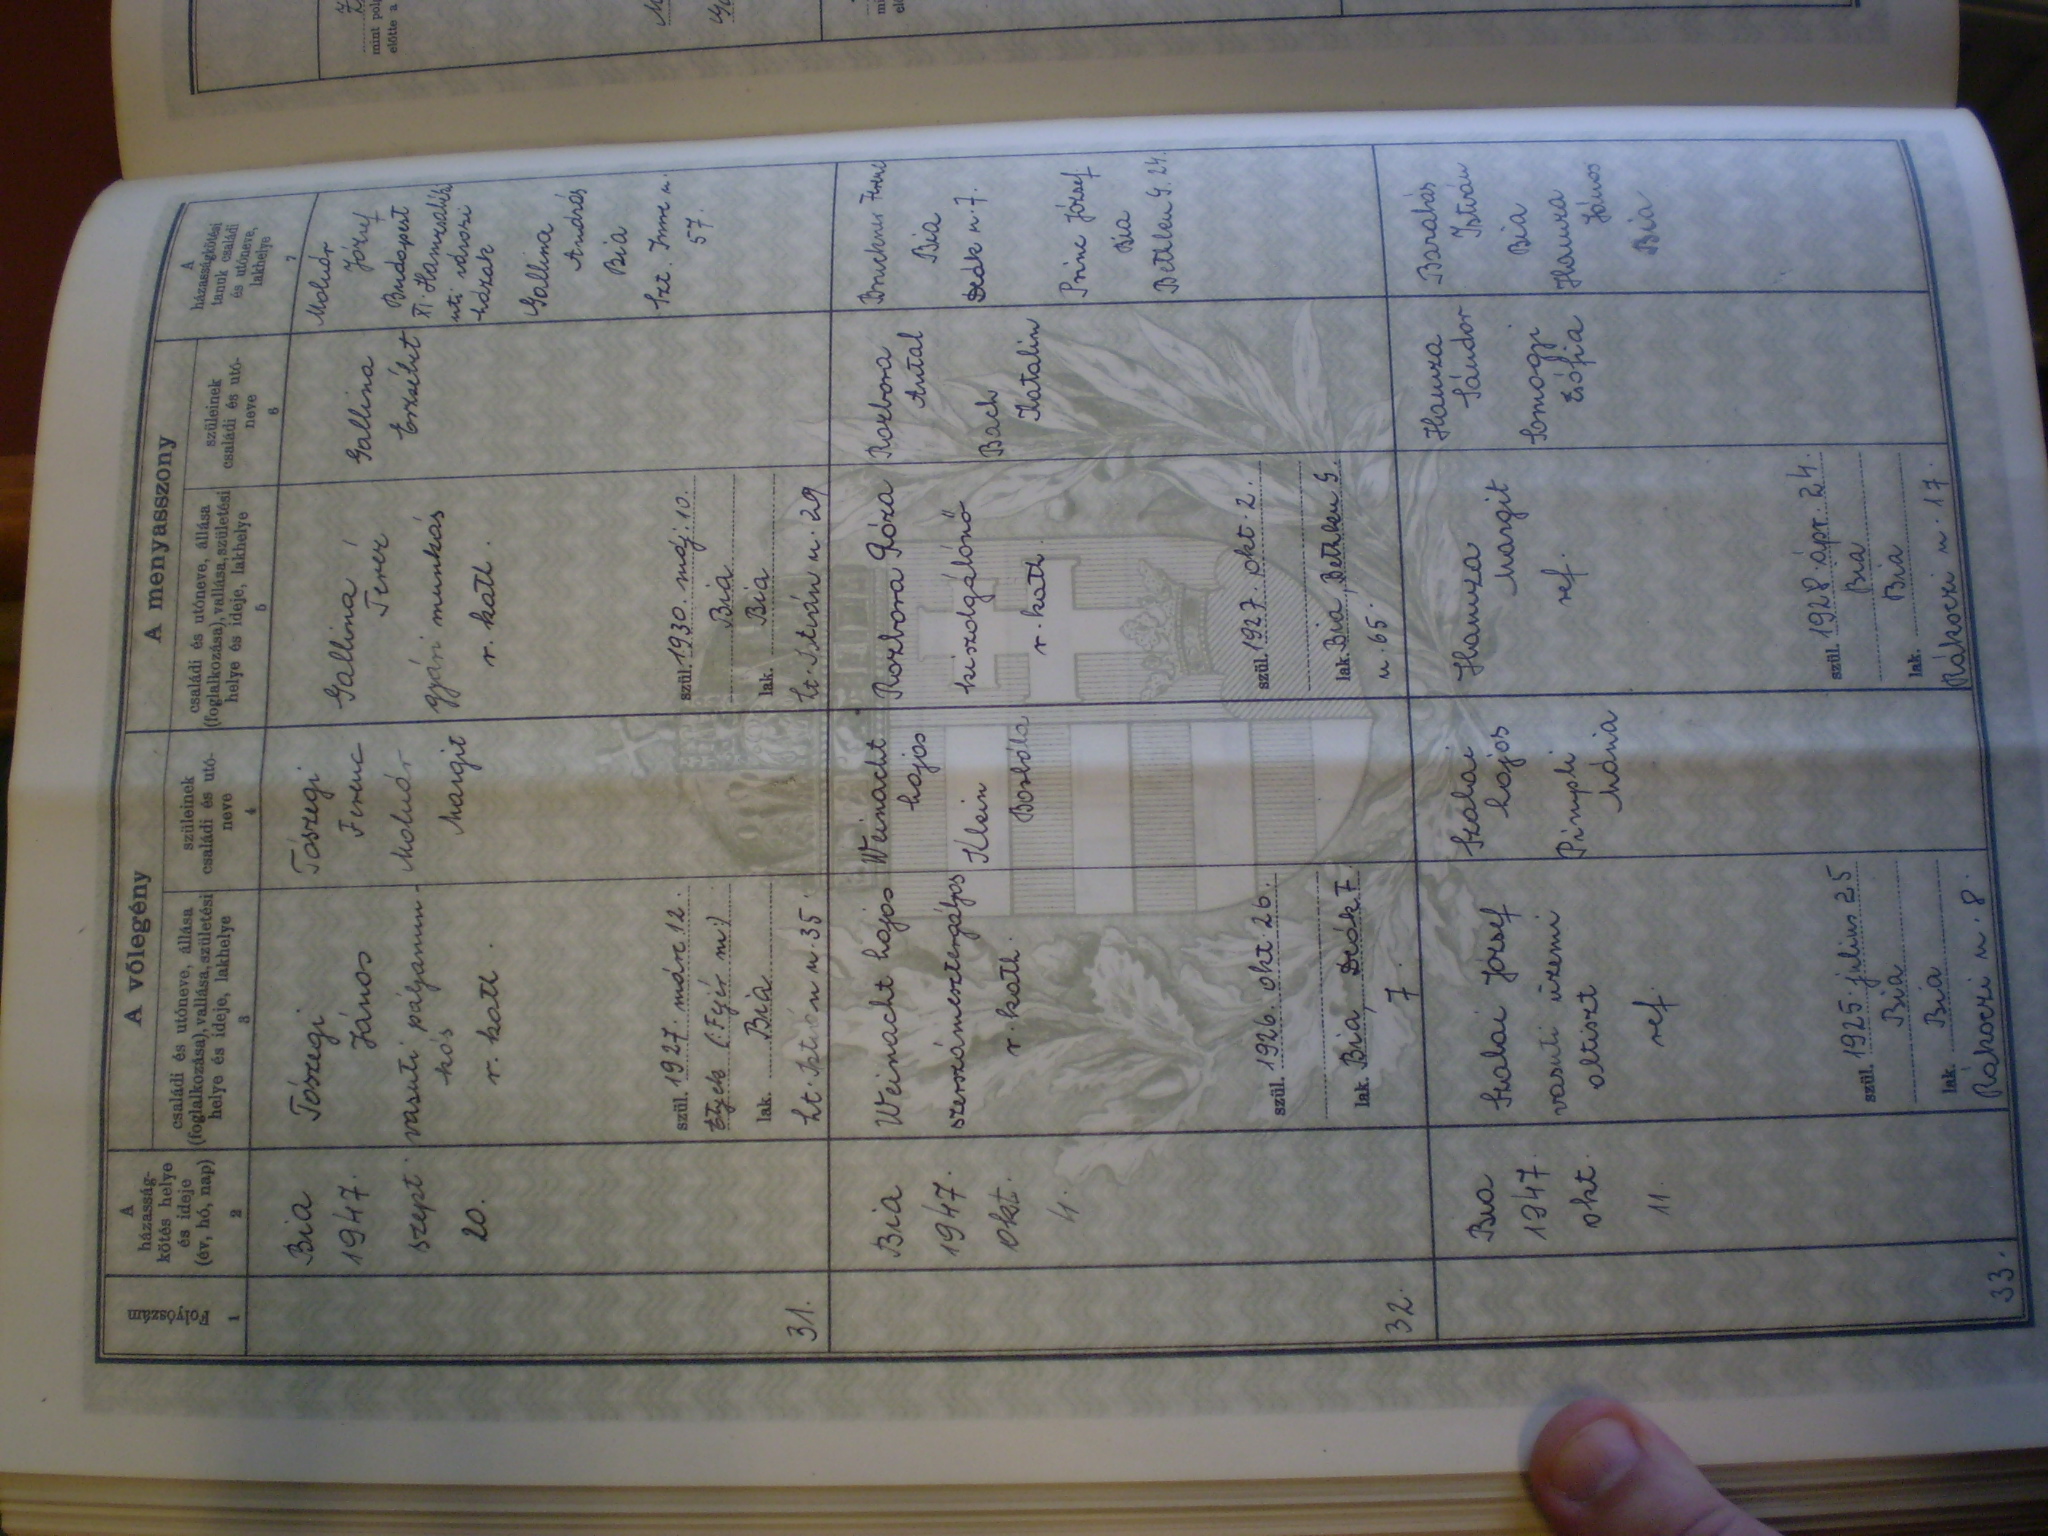 A vőlegény
A menyasszony
Folyószám
1
A
házasság-
kötés helye
és ideje
(év, hó, nap)
2
családi és utóneve, állása
(foglalkozása), vallása, születési
helye és ideje, lakhelye
3
szüleinek
családi és utó-
neve
4
családi és utóneve, állása
(foglalkozása), vallása, születési
helye és ideje, lakhelye
5
szüleinek
családi és utó-
neve
6
A
házasságkötési
tanuk családi
és utóneve,
lakhelye
7
31.
Bia
1947.
szept.
20.
Tószegi
János
vasuti pályamun-
kás
r. kath.
szül. 1927. márc 12.
Etyek (Fejér m.)
lak. Bia
Szt. István u. 35.
Tószegi
Ferenc
Molnár
Margit
Gallina
Teréz
gyári munkás
r. kath.
szül. 1930. máj. 10.
Bia
lak. Bia
Szt. István u. 29
Gallina
Erzsébet
Molnár
József
Budapest
XI. Hamzsabégi
uti városi
házak
Gallina
András
Bia
Szt. Imre u.
57.
32.
Bia
1947.
okt.
4.
Weinacht Lajos
szerszámesztergályos
r. kath.
szül. 1926. okt. 26.
lak. Bia, Deák F.
7.
Weinacht
Lajos
Klein
Borbála
Rozbora Róza
kiszolgálónő
r. kath.
szül. 1927. okt. 2.
lak. Bia, Bethlen G.
u. 65.
Rozbora
Antal
Bach
Katalin
Bruckner Ferenc
Bia
Deák u. 7.
Princ József
Bia
Betlen G. 24.
33.
Bia
1947.
okt.
11.
Szalai József
vasuti üzemi
altiszt
ref.
szül. 1925. julius 25
Bia
lak. Bia
Rákoczi u. 8.
Szalai
Lajos
Pinnyei
Mária
Hamza
Margit
ref.
szül. 1928. ápr. 24.
Bia
lak. Bia
Rákoczi u. 17.
Hamza
Sándor
Somogyi
Zsófia
Barabás
István
Bia
Hamza
János
Bia